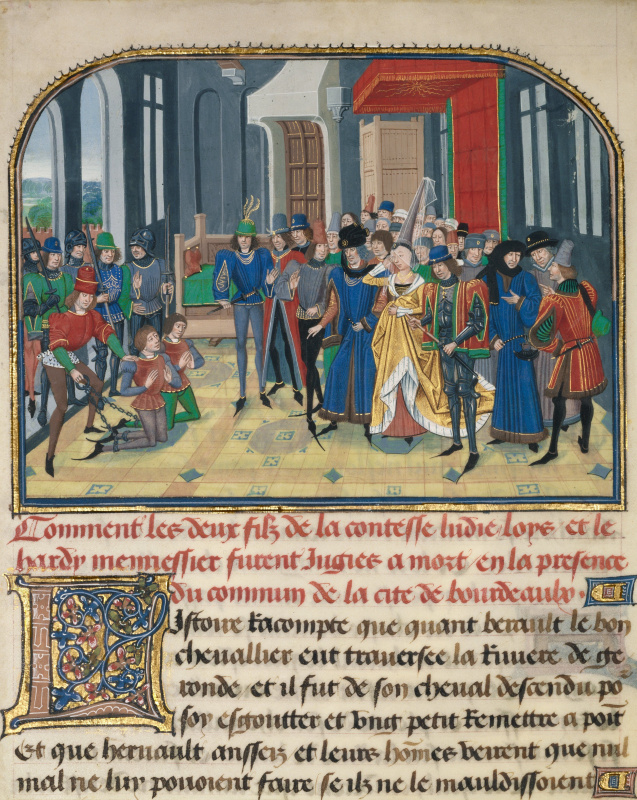 Comment les deux filz de la contesse ludie loys et le
hardy mennessier furent Jugies a mort en la presence
du commun de la cite de bourdeaulx.
Listoire Racompte que quant berault le bon
cheuallier eut trauersee la Riuiere de ge
ronde et il fut de son cheual descendu po
soy esgoutter et vng petit Remettre a poit
Et que heruault ansseiz et leurs hõmes veirent que nul
mal ne luy pouoient faire se ilz ne le mauldissoient